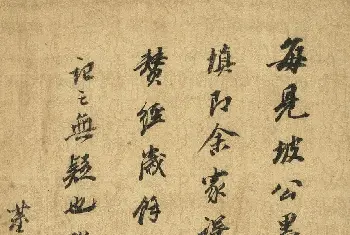 每見坡公墨
慎即余家
贊經歲餘
記之無疑也